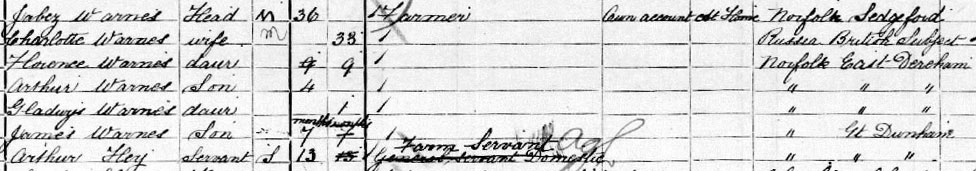 Jabez Warnes Head M 36 Farmer Own account At Home Norfolk Sedgeford
Charlotte Warnes wife m 33 Russia British Subject
Florence Warnes daur 9 9 Norfolk East Dereham
Arthur Warnes Son 4 " " "
Gladwys Warnes daur 1 " " "
months months
James Warnes Son 7 7 " Gt Dunham
Farm Servant Ag
Arthur Hey Servant S 13 13 General Servant Domestic " " "